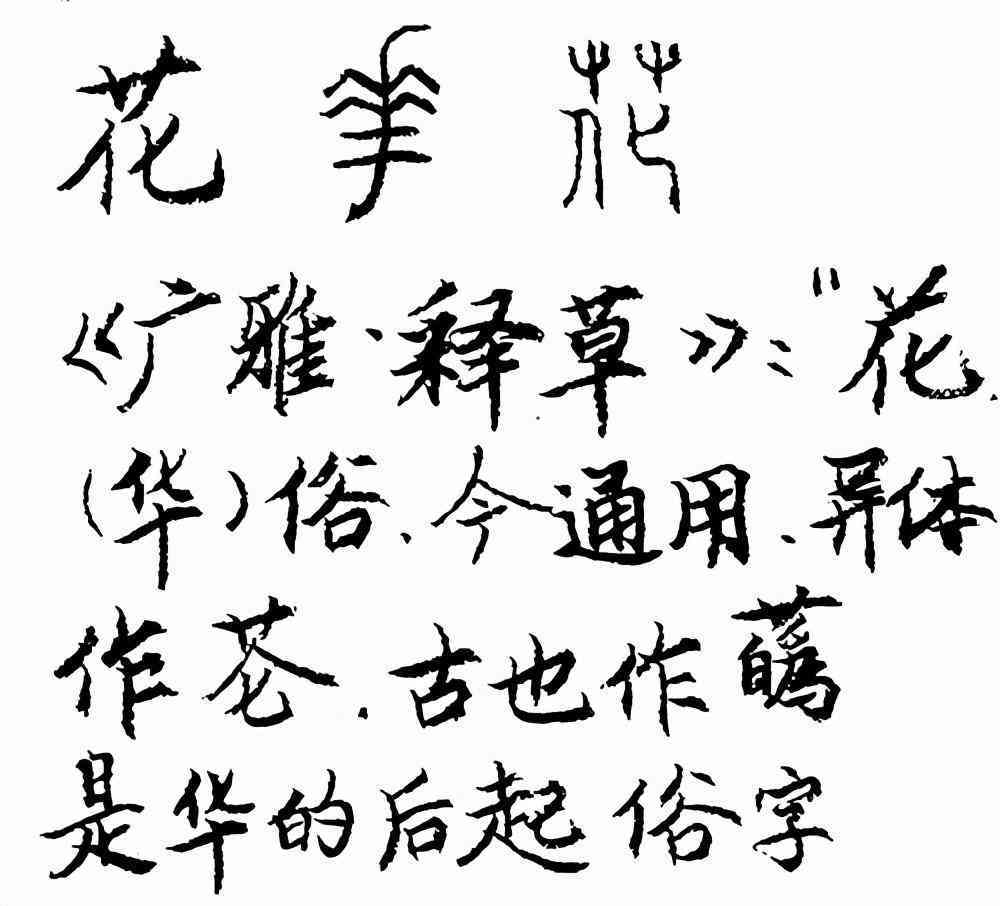 花 花
《广雅·释草》:"花.
(华)俗.今通用.异体
作芲.古也作蘤
是华的后起俗字